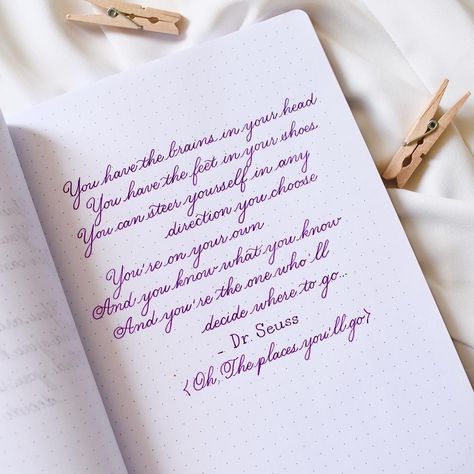 You have the brains in your head
You have the feet in your shoes
You can steer yourself in any
direction you choose
You're on your own
And you know what you know
And you're the one who'll
decide where to go...
- Dr. Seuss
< Oh, The places you'll go>